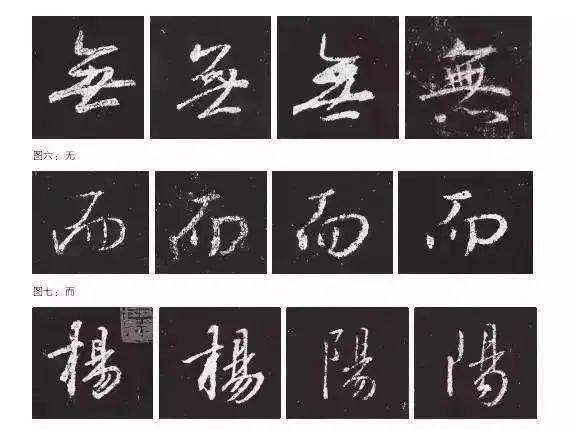 無 無 無 無
图六：无
而 而 而 而
图七：而
楊 楊 陽 陽